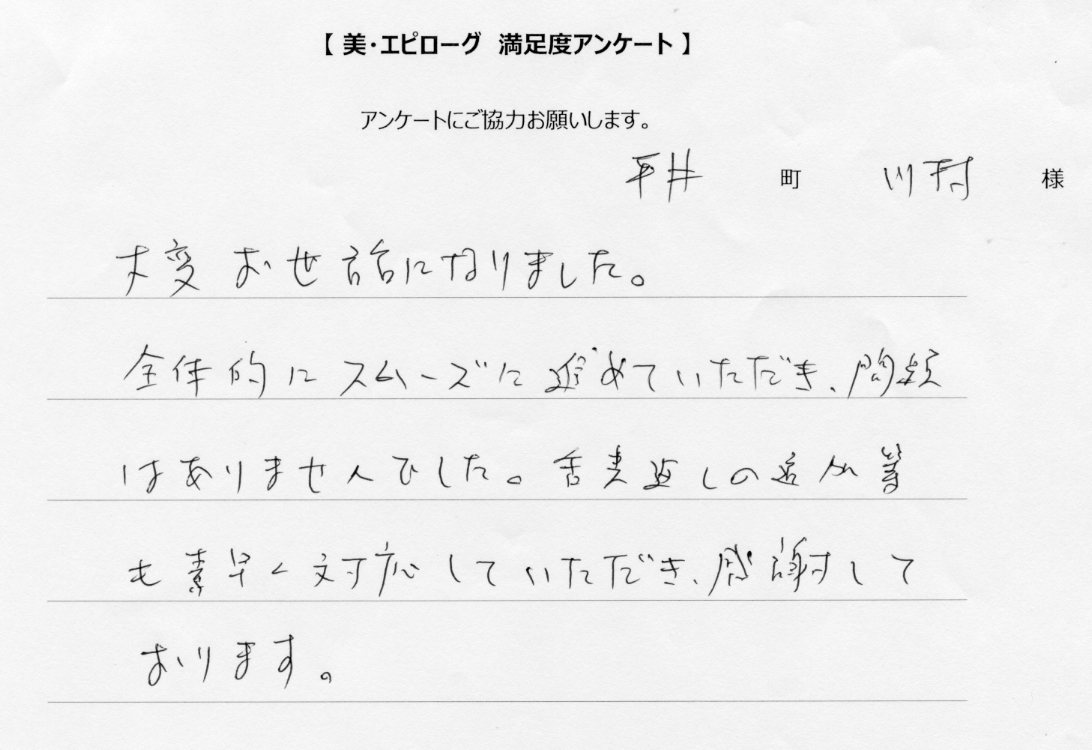 【 美・エピローグ 満足度アンケート 】
アンケートにご協力お願いします。
平井 町 川村 様
大変お世話になりました。
全体的にスムーズに進めていただき、問題
はありませんでした。香典返しの追加等
も素早く対応していただき、感謝して
おります。